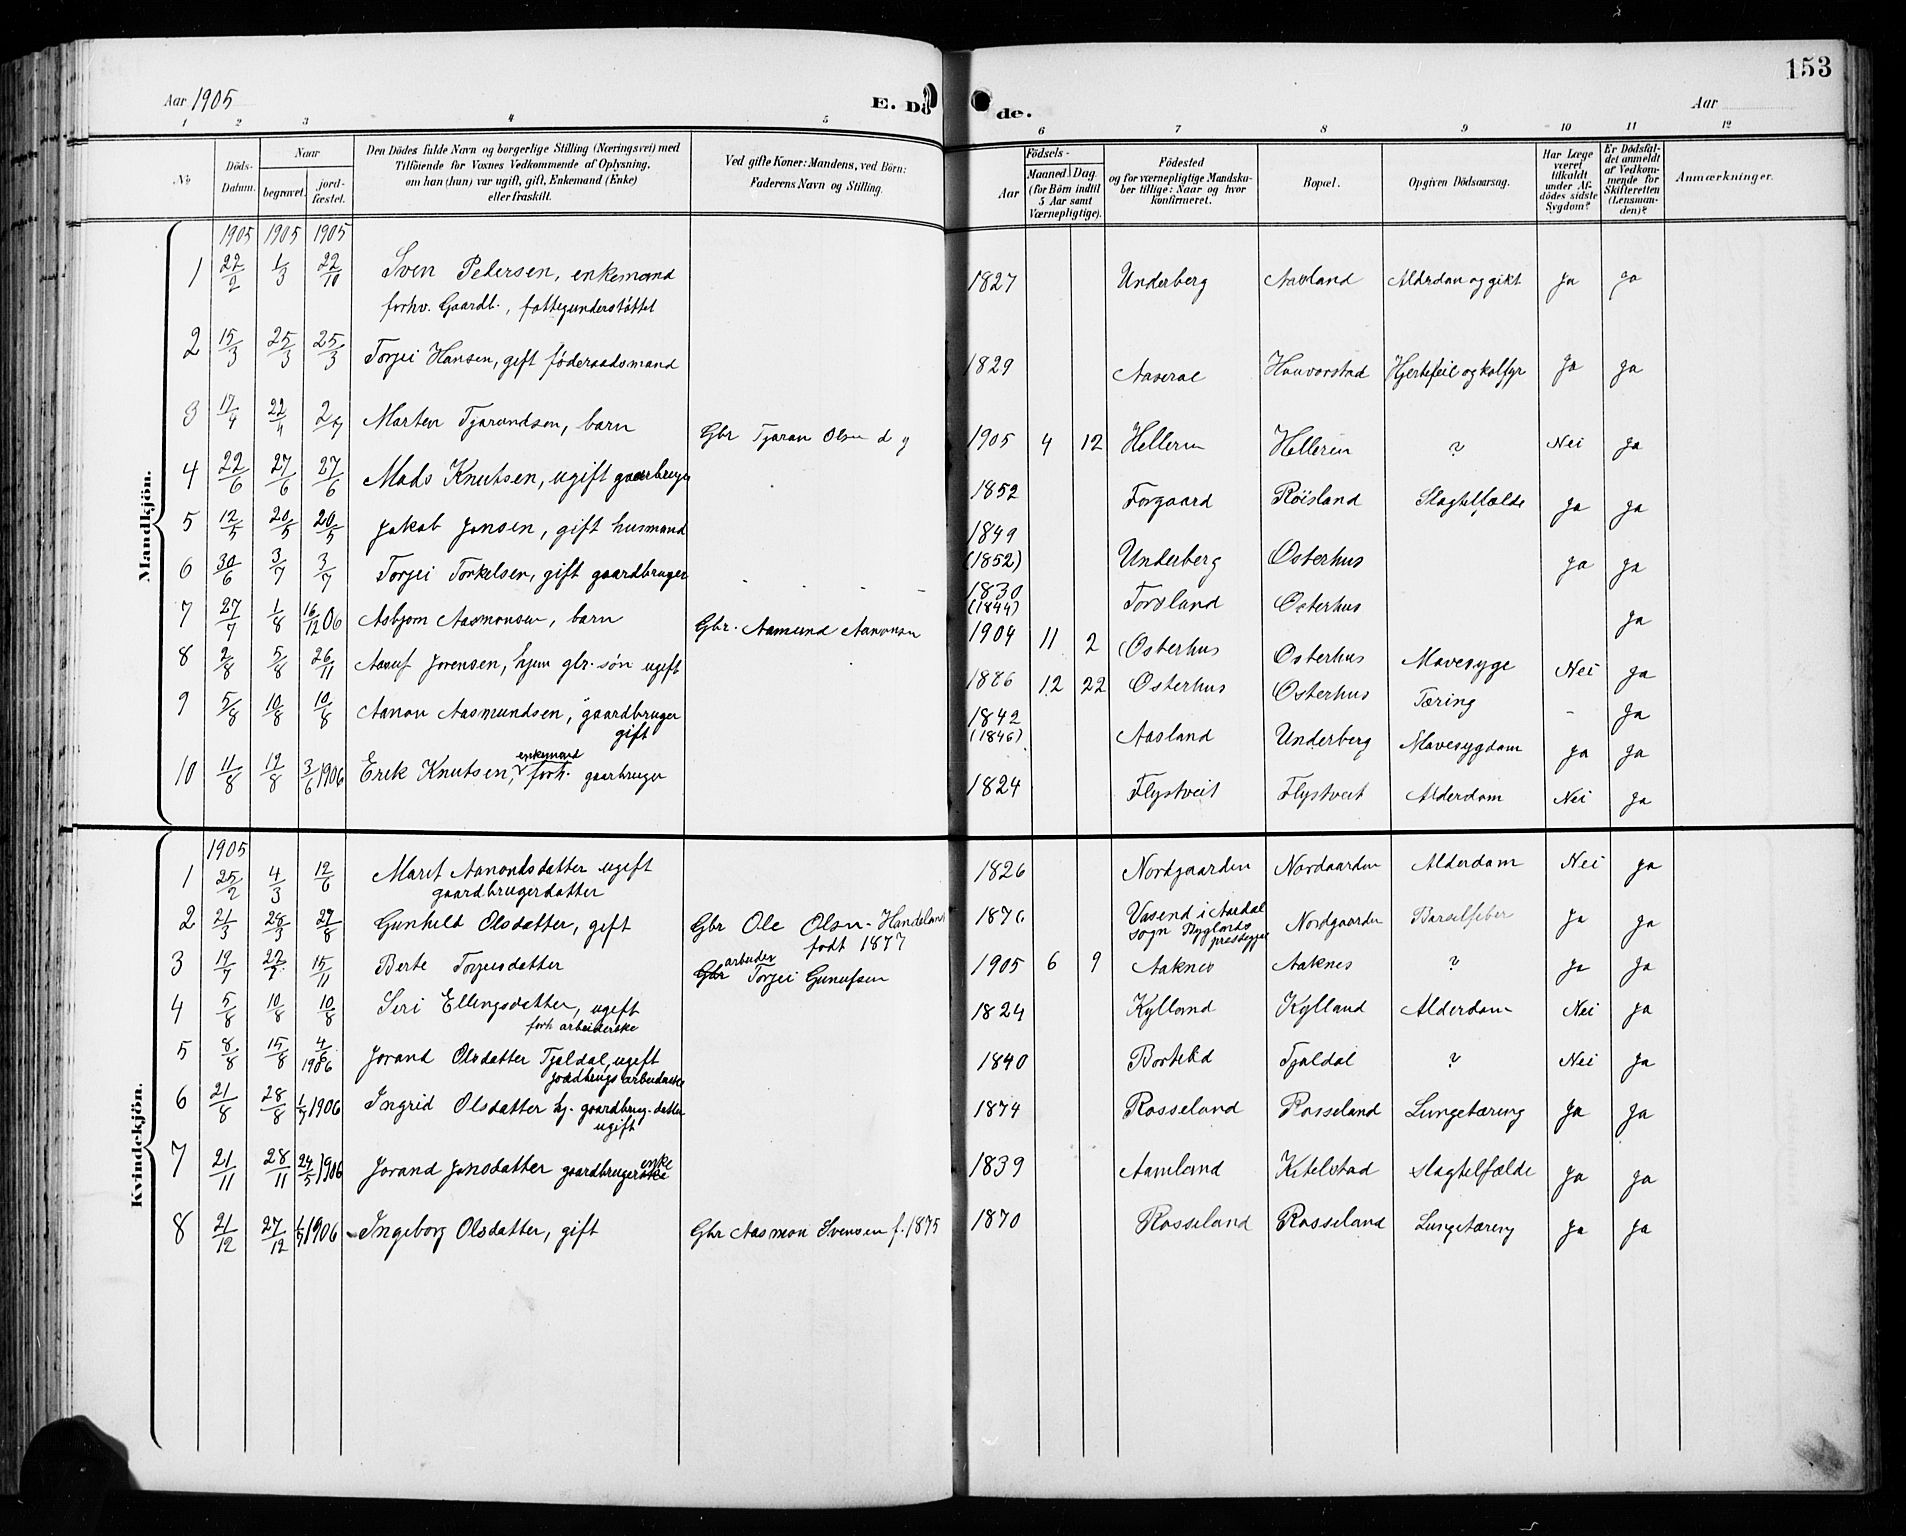 153
Aar 1905
E. Dö
de.
Aar
1 2 3 4 5 6 7 8 9 10 11 12
No
Döds-Datum.
Naar
begravet.
jord-fæstet.
Den Dödes fulde Navn og borgerlige Stilling (Næringsvei) med
Tilföiende for Voxnes Vedkommende af Oplysning,
om han (hun) var ugift, gift, Enkemand (Enke)
eller fraskilt.
Ved gifte Koner: Mandens, ved Börn:
Faderens Navn og Stilling.
Födsels-
Aar
Maaned Dag
(for Börn indtil
5 Aar samt
Værnepligtige).
Födested
og for værnepligtige Mandska-
ber tillige: Naar og hvor
konfirmeret.
Bopæl.
Opgiven Dödsaarsag.
Har Læge
været
tilkaldt
under Af-
dödes sidste
Sygdom?
Er Dödsfal-
det anmeldt
af Vedkom-
mende for
Skifteretten
(Lensman-
den)?
Anmærkninger.
Mandkjön.
1905 1905 1905
1 22/2 1/3 22/10 Sven Petersen, enkemand 1827 Underberg Aasland Alderdom og gikt Ja Ja
forhv. Gaardb., fattigunderstøttet
2 15/3 25/3 25/3 Torjei Hansen, gift føderaadsmand 1829 Aaseral Haaverstad Hjertefeil og koldfyr Ja Ja
3 17/4 22/4 2/7 Marten Tjarandsen, barn Gbr Tjaran Olsen d y 1905 4 12 Helleren Helleren ? Nei Ja
4 22/6 27/6 27/6 Mads Knutsen, ugift gaardbruger 1852 Forgaard Røisland Slagtilfælde Ja Ja
5 12/5 20/5 20/5 Jakob Jonsen, gift husmand 1849 (1852) Underberg Osterhus Ja Ja
6 30/6 3/7 3/7 Torjei Torkelsen, gift gaardbruger 1830 (1844) Forsland Osterhus Ja
7 27/7 1/8 16/12 06 Asbjørn Aasmonsen, barn Gbr. Aamund Aanonsen 1904 11 2 Osterhus Osterhus Mavesyge Nei Ja
8 2/8 5/8 26/11 Aasuf Jorensen, hjem gbr. søn ugift 1886 12 22 Osterhus Osterhus Tæring - Ja
9 5/8 10/8 10/8 Aanon Aasmundsen, gaardbruger gift 1842 (1846) Aasland Underberg Mavesygdom Ja Ja
10 11/8 19/8 3/6 1906 Erik Knutsen, enkemand forh. gaarbruger 1824 Flystveit Flystveit Alderdom Nei Ja
Kvindekjön.
1905
1 25/2 4/3 12/6 Marit Aanondsdatter ugift 1826 Nordgaarden Nordaarden Alderdom Nei Ja
gaardbrugerdatter
2 21/3 28/3 29/8 Gunhild Olsdatter, gift Gbr Ole Olsn - Handeland født 1877 1876 Vasend i Aardal sogn Byglands prestegjel Nordgaarden Barselfeber Ja Ja
3 19/7 27/7 15/11 Berte Torjeisdatter Gbr arbeider Torjei Gunufsen 1905 6 9 Aaknes Aaknes ? Ja Ja
4 5/8 10/8 10/8 Siri Ellingsdatter, ugift 1824 Kylland Kylland Alderdom Nei Ja
forh arbeiderske
5 8/8 15/8 4/6 1906 Jorand Olsdatter Tjaldal, ugift 1840 Bortelid Tjaldal ? Nei Ja
jordbrugsarbeiderske
6 21/8 28/8 1/7 1906 Ingrid Olsdatter hj. gaardbrug. datter ugift 1874 Rosseland Rosseland Lungetæring Ja Ja
7 21/11 28/11 24/5 1906 Jorand Jonsdatter gaardbrugerske enke 1839 Aamland Kitelstad Slagtelfælde Ja Ja
8 21/12 27/12 1/7 1906 Ingeborg Olsdatter, gift Gbr Aasmon Svensen f. 1875 1870 Rosseland Rosseland Lungetæring Ja Ja